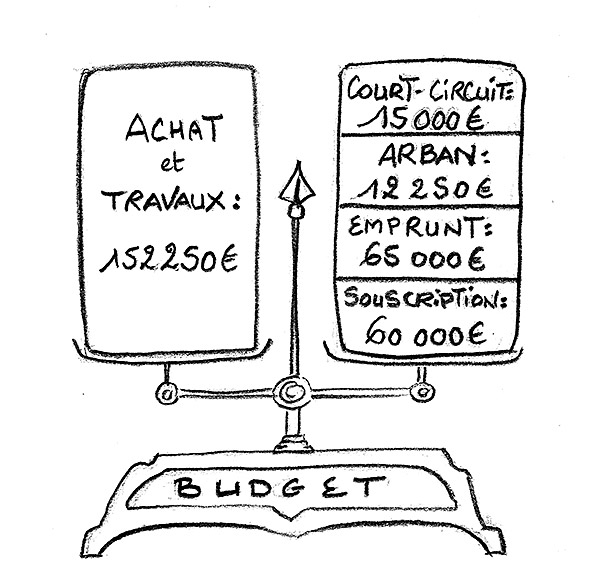 ACHAT
et
TRAVAUX:
152250€
COURT-CIRCUIT:
15000€
ARBAN:
12 250€
EMPRUNT:
65 000€
SOUSCRIPTION:
60 000€
BUDGET